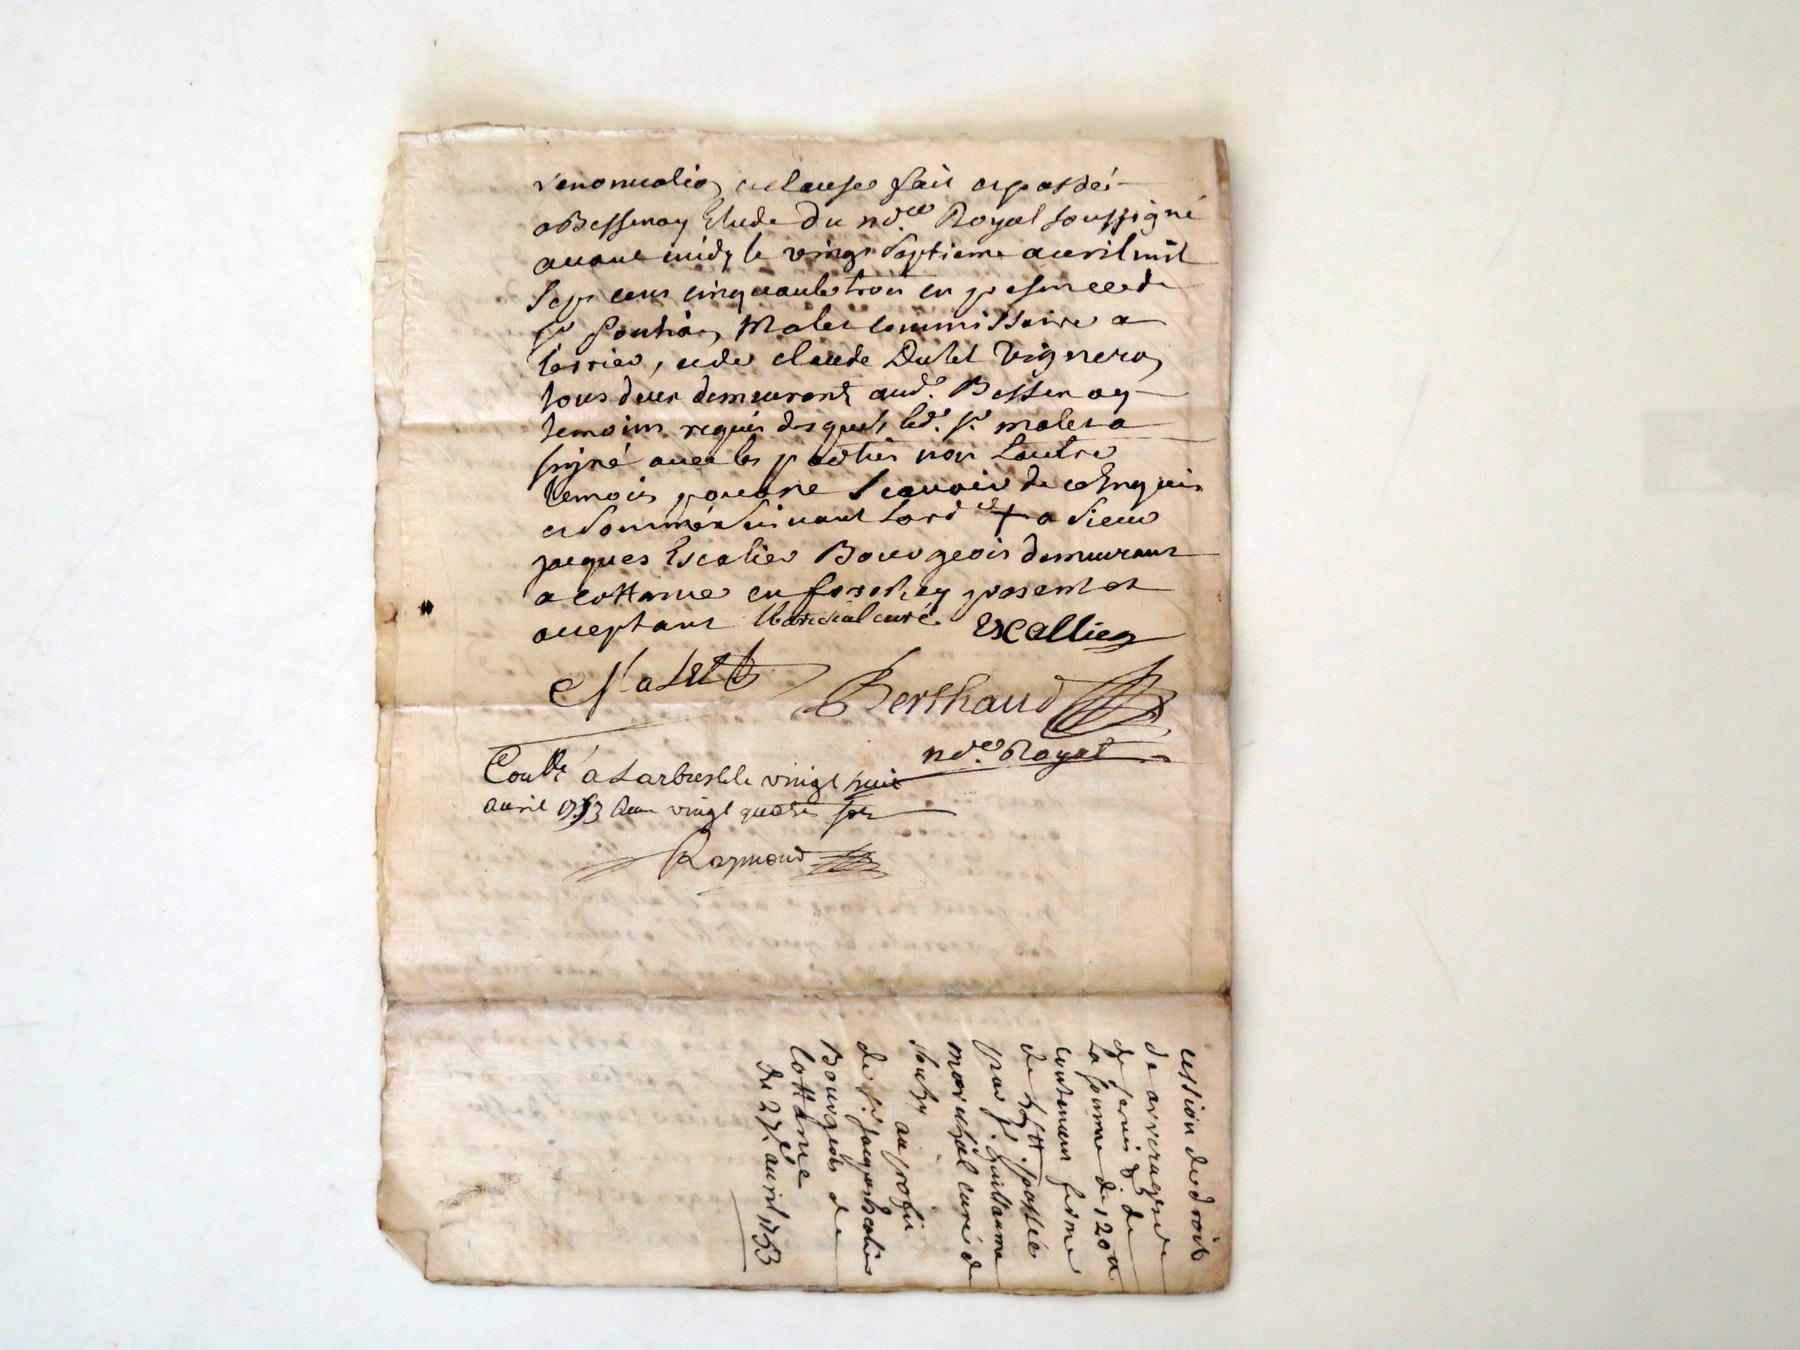 renonciation et clause fait et passé
a Bessenay Etude du nore. Royal soussigné
avant midy le vingt septieme avril mil
sept cens cinquante trois en presence de
sr Malet commissaire a
terrier, et de claude Dulet Vigneron
tous deux demeurants aud. Bessenay
temoins requis desquels led. sr. malet a
signé avec les parties non L'autre
temoin pour ne scavoir de ce Enquis
et sommé suivant Lord.ce + a sieur
jacques Escalier Bourgeois demeurant
a cottance en forest y present et
acceptant Marechal curé. Escallier
Malet
Berthaud
nore. Royal
Conllé a Larbresle le vingt huit
avril 1753 Reçu vingt quatre sols
Raymond
cession de droit
de arrerages de
de servis & de
La somme de 120 tt
contenant ferme
de tt. passée
par sr. guillaume
marechal curé de
souzy au profit
de sr jacques Escalier
Bourgeois de
Cottance
Du 27e. avril 1753